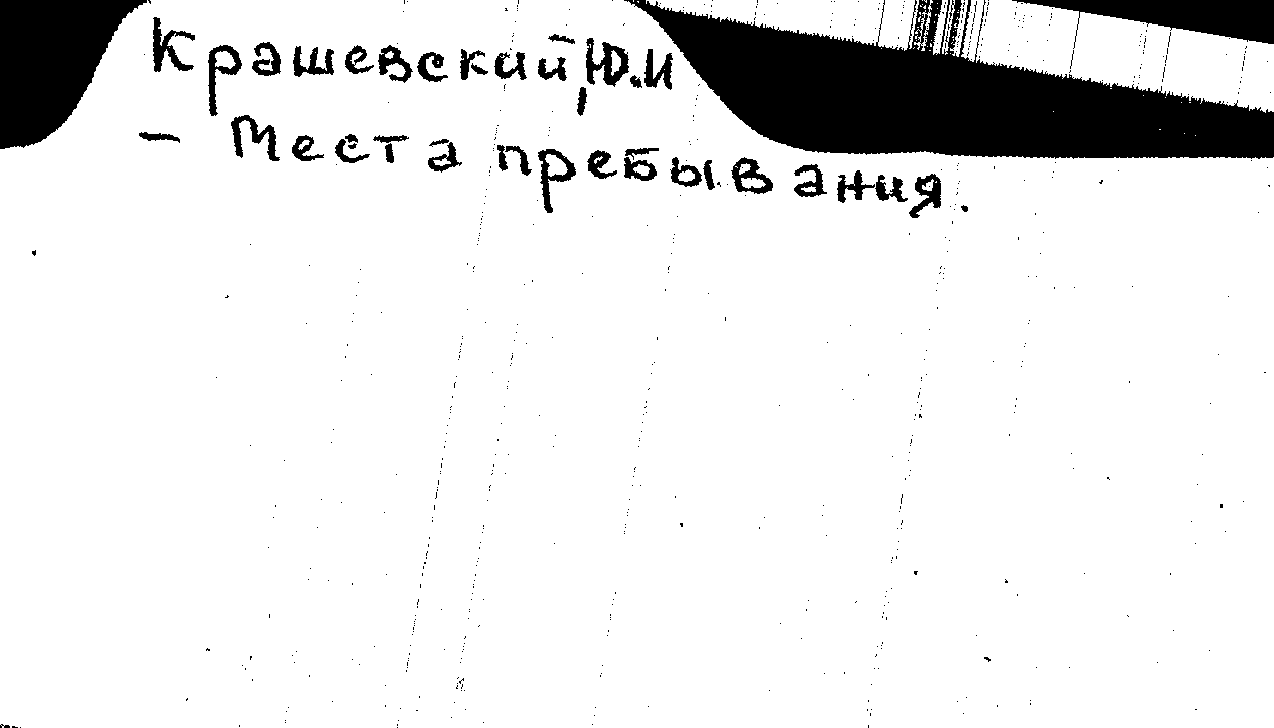 Крашевский, Ю.И
– Места пребывания.